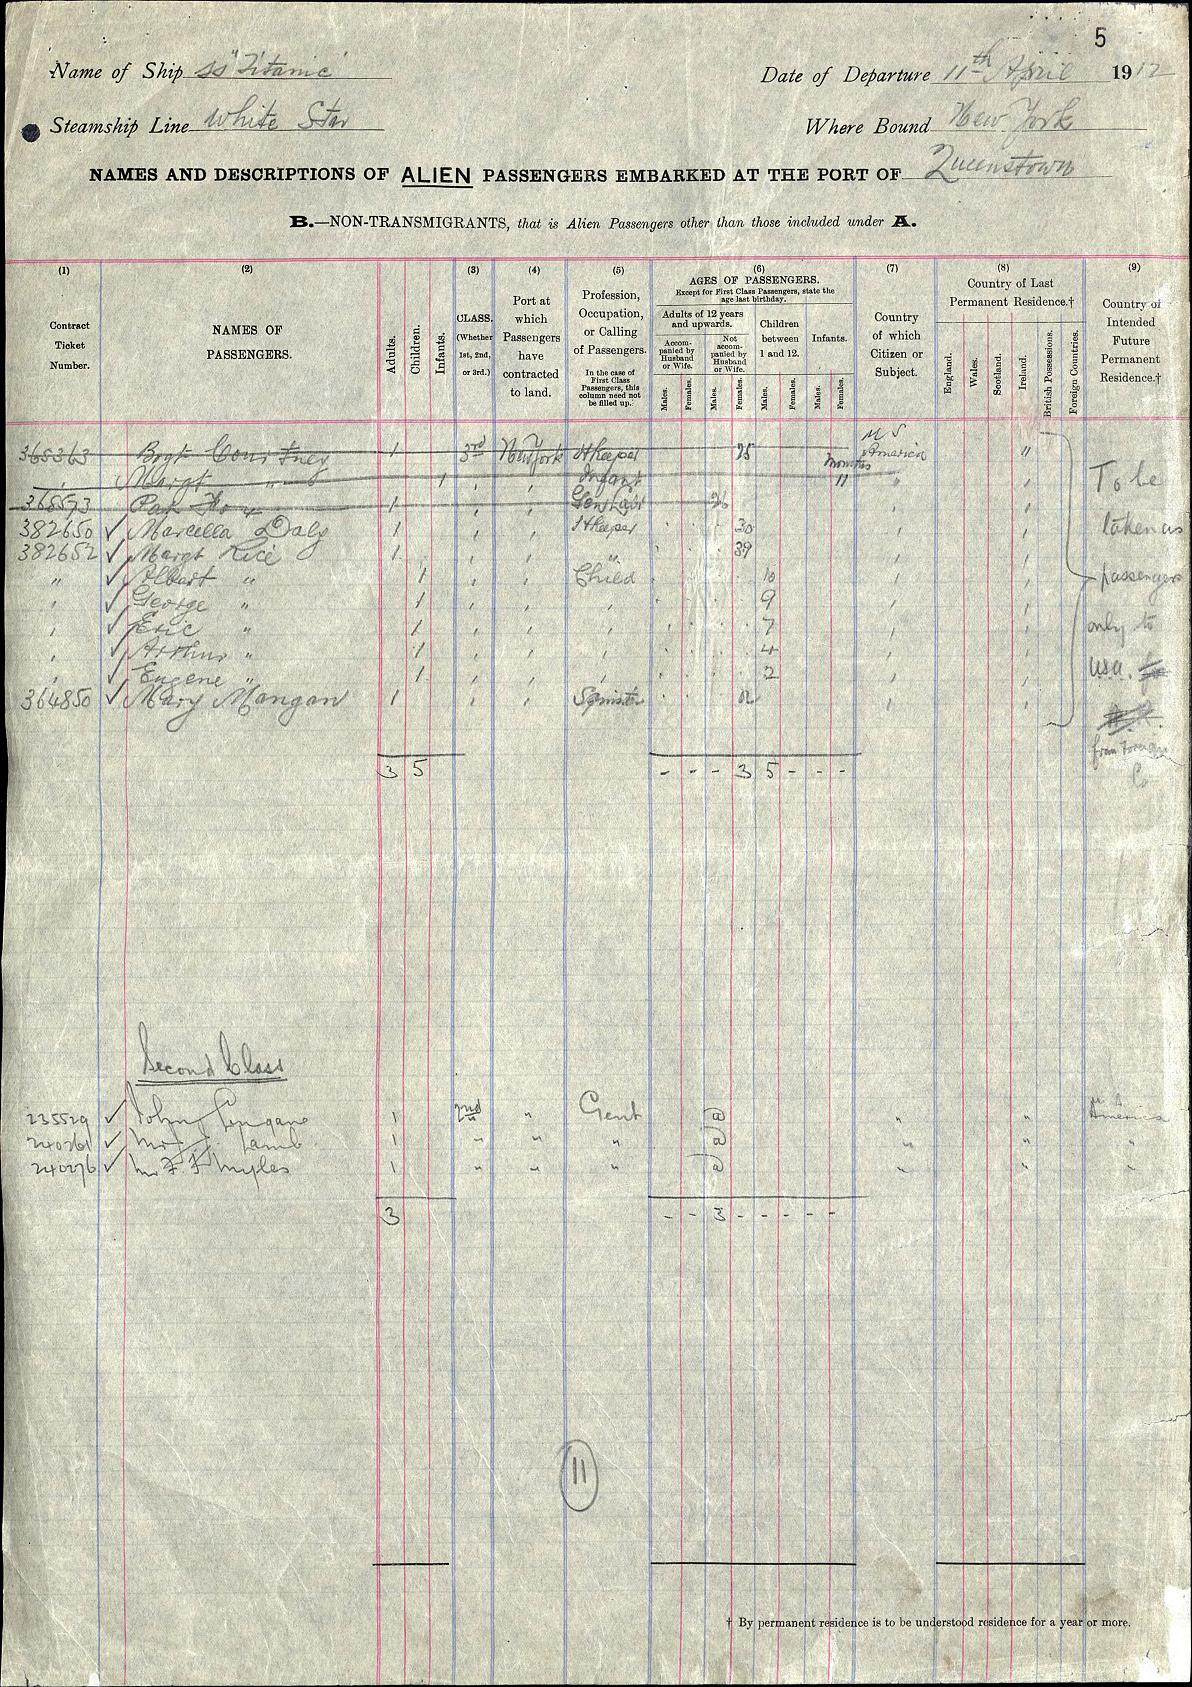 5
Name of Ship SS "Titanic" Date of Departure 11th April 1912
Steamship Line White Star Where Bound New York
NAMES AND DESCRIPTIONS OF ALIEN PASSENGERS EMBARKED AT THE PORT OF Queenstown
B.—NON-TRANSMIGRANTS, that is Alien Passengers other than those included under A.
(1) (2) (3) (4) (5) (6) (7) (8) (9)
Contract Ticket Number.
NAMES OF PASSENGERS.
Adults.
Children.
Infants.
CLASS. (Whether 1st, 2nd, or 3rd.)
Port at which Passengers have contracted to land.
Profession, Occupation, or Calling of Passengers.
In the case of First Class Passengers, this column need not be filled up.
AGES OF PASSENGERS.
Except for First Class Passengers, state the age last birthday.
Adults of 12 years and upwards.
Accompanied by Husband or Wife.
Not accompanied by Husband or Wife.
Children between 1 and 12.
Infants.
Males. Females. Males. Females. Males. Females. Males. Females.
Country of which Citizen or Subject.
Country of Last Permanent Residence.†
England. Wales. Scotland. Ireland. British Possessions. Foreign Countries.
Country of Intended Future Permanent Residence.†
365363 Bogt 1 3rd New York Hkeeper 25 U S America "
" Margt " 1 " " Infant 11 months " "
368573 Pat Fox 1 " " Gen Labr 26 " "
382650 ✓ Marcella Daly 1 " " Hkeeper 30 " "
382652 ✓ Margt Rice 1 " " " 39 " "
" ✓ Albert " 1 " " Child 10 " "
" ✓ George " 1 " " " 9 " "
" ✓ Eric " 1 " " " 7 " "
" ✓ Arthur " 1 " " " 4 " "
" ✓ Eugene " 1 " " " 2 " "
364850 ✓ Mary Mangan 1 " " Spinster " "
To be
taken as
passengers
only to
U.S.A.
from Foreign
Co
3 5 - - - 3 5 - - -
Second Class
235529 ✓ John 1 2nd " Gent " " U.S. America
240261 ✓ Mr J. J. Lamb 1 " " " " " "
240276 ✓ Mr T. F. Myles 1 " " " " " "
3 - - 3 - - - - -
11
† By permanent residence is to be understood residence for a year or more.